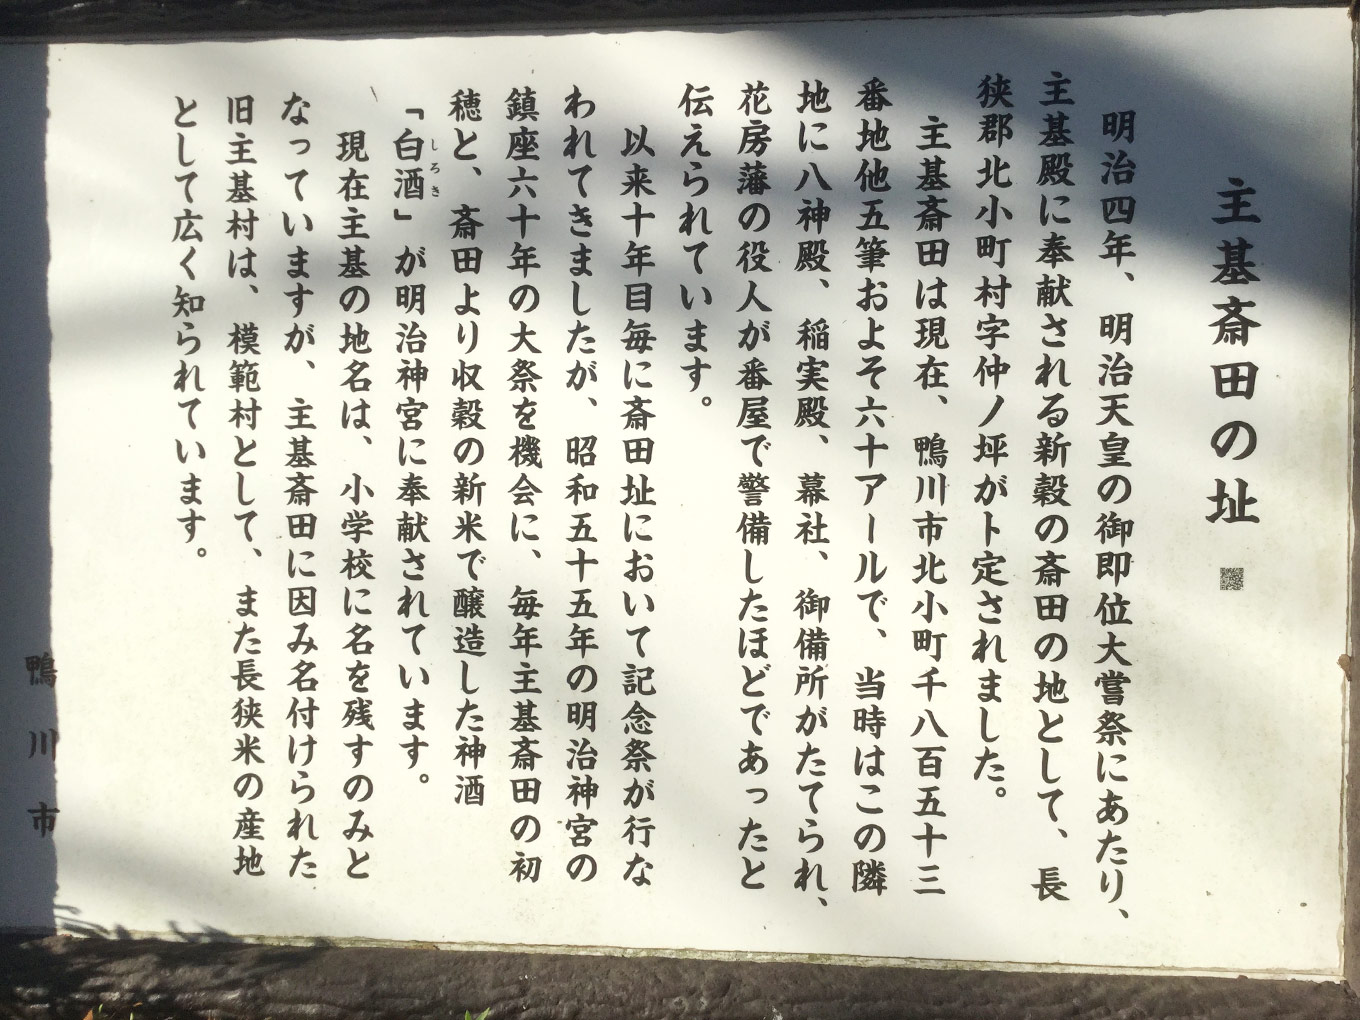 主基斎田の址
明治四年、明治天皇の御即位大嘗祭にあたり、
主基殿に奉献される新穀の斎田の地として、長
狭郡北小町村字仲ノ坪がト定されました。
主基斎田は現在、鴨川市北小町千八百五十三
番地他五筆およそ六十アールで、当時はこの隣
地に八神殿、稲実殿、幕社、御備所がたてられ、
花房藩の役人が番屋で警備したほどであったと
伝えられています。
以来十年目毎に斎田址において記念祭が行な
われてきましたが、昭和五十五年の明治神宮の
鎮座六十年の大祭を機会に、毎年主基斎田の初
穂と、斎田より収穀の新米で醸造した神酒
「白酒」が明治神宮に奉献されています。
しろき
現在主基の地名は、小学校に名を残すのみと
なっていますが、主基斎田に因み名付けられた
旧主基村は、模範村として、また長狭米の産地
として広く知られています。
鴨川市